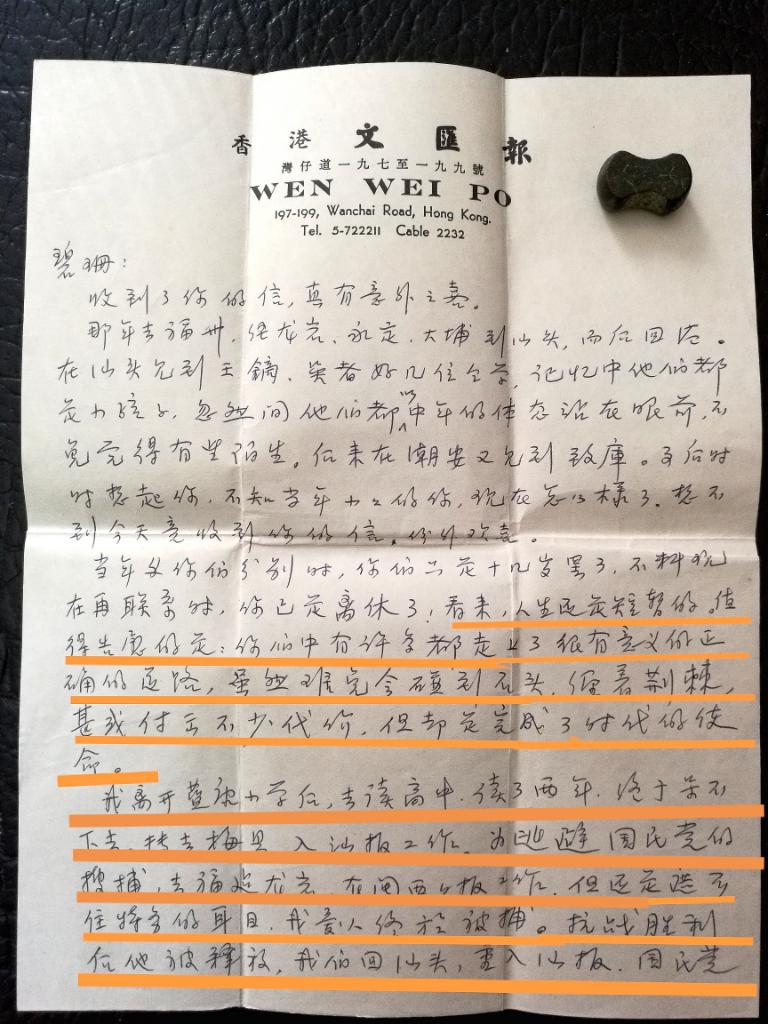 香港文匯報
灣仔道一九七至一九九號
WEN WEI PO
197-199, Wanchai Road, Hong Kong.
Tel. 5-722211 Cable 2232
碧珊：
收到了你的信，真有意外之喜。
那年去福州，经龙岩、永定、大埔到汕头，而后回港。
在汕头见到王鏑、吴者好几位同学，记忆中他们都
是小孩子，忽然间他们都以中年的体态站在眼前，不
免觉得有些陌生。后来在潮安又见到致庫。事后时
时想起你，不知当年小小的你，现在怎么様了。想不
到今天竟收到你的信。份外欢喜。
当年与你们分别时，你们只是十几岁罢了，不料现
在再联系时，你已是离休了！看来，人生还是短暂的。值
得告慰的是：你们中有许多都走上了很有意义的正
确的道路，虽然难免会碰到石头，踩着荆棘，
甚或付出不少代价，但却是完成了时代的使
命。
我离开小学后，去读高中，读了两年，终于呆不
下去，扶去梅县入汕报工作。为逃避国民党的
搜捕，去福建龙岩，在闽西日报工作，但还是遮不
住特务的耳目，我爱人终於被捕。抗战胜利
后他被释放，我们回汕头，重入汕报，国民党